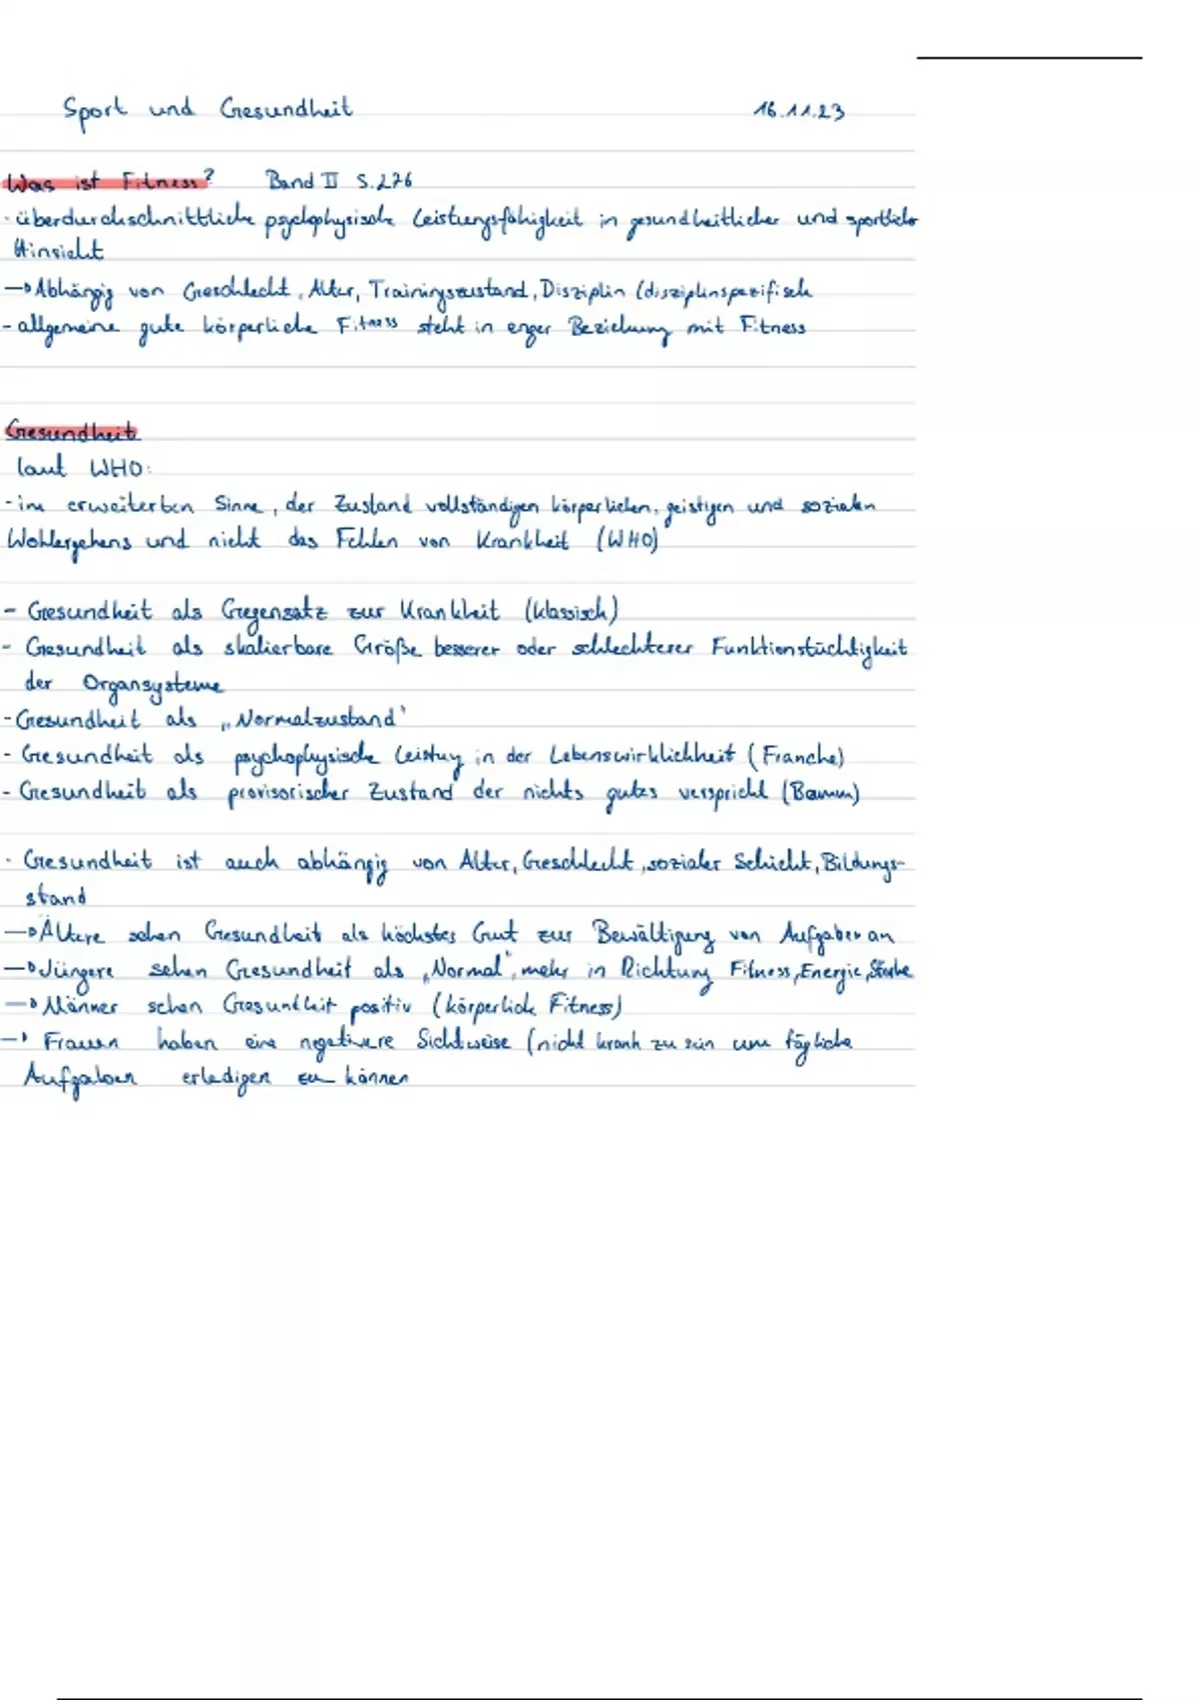 Sport und Gesundheit 16.11.23
Was ist Fitness? Band II S.276
- überdurchschnittliche psychophysische Leistungsfähigkeit in gesundheitlicher und sportlicher
Hinsicht
→ Abhängig von Geschlecht, Alter, Trainingszustand, Disziplin (disziplinspezifisch
- allgemeine gute körperliche Fitness steht in enger Beziehung mit Fitness
Gesundheit
laut WHO:
- im erweiterben Sinne, der Zustand vollständigen körperlichen, geistigen und sozialen
Wohlergehens und nicht das Fehlen von Krankheit (WHO)
- Gesundheit als Gegensatz zur Krankheit (klassisch)
- Gesundheit als skalierbare Größe besserer oder schlechterer Funktionstüchtigkeit
der Organsysteme
- Gesundheit als „Normalzustand"
- Gesundheit als psychophysische Leistung in der Lebenswirklichkeit (Franche)
- Gesundheit als provisorischer Zustand der nichts gutes verspricht (Bamm)
- Gesundheit ist auch abhängig von Alter, Geschlecht, sozialer Schicht, Bildungs-
stand
→ Ältere sehen Gesundheit als höchstes Gut zur Bewältigung von Aufgaben an
→ Jüngere sehen Gesundheit als „Normal", mehr in Richtung Fitness, Energie, Stärke
→ Männer sehen Gesundheit positiv (körperliche Fitness)
→ Frauen haben eine negativere Sichtweise (nicht krank zu sein um tägliche
Aufgaben erledigen zu können